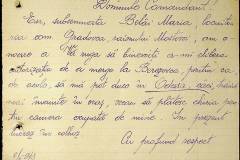 Domnule Comandant!
Eu, subsemnata Belei Maria locuito
rea com. Gradovca raionului Mostovoi, am o-
noare a Vă ruga să binevoiți a-mi elibera
autorizația de a merge la Berezovca pentru ca
de acolo, să mă pot duce in Odesa, 
mai înainte in oraș, vreau să plătesc chiria pen-
tru camera ocupată de mine. In prezent
lucrez in colhoz.
Cu profund respect